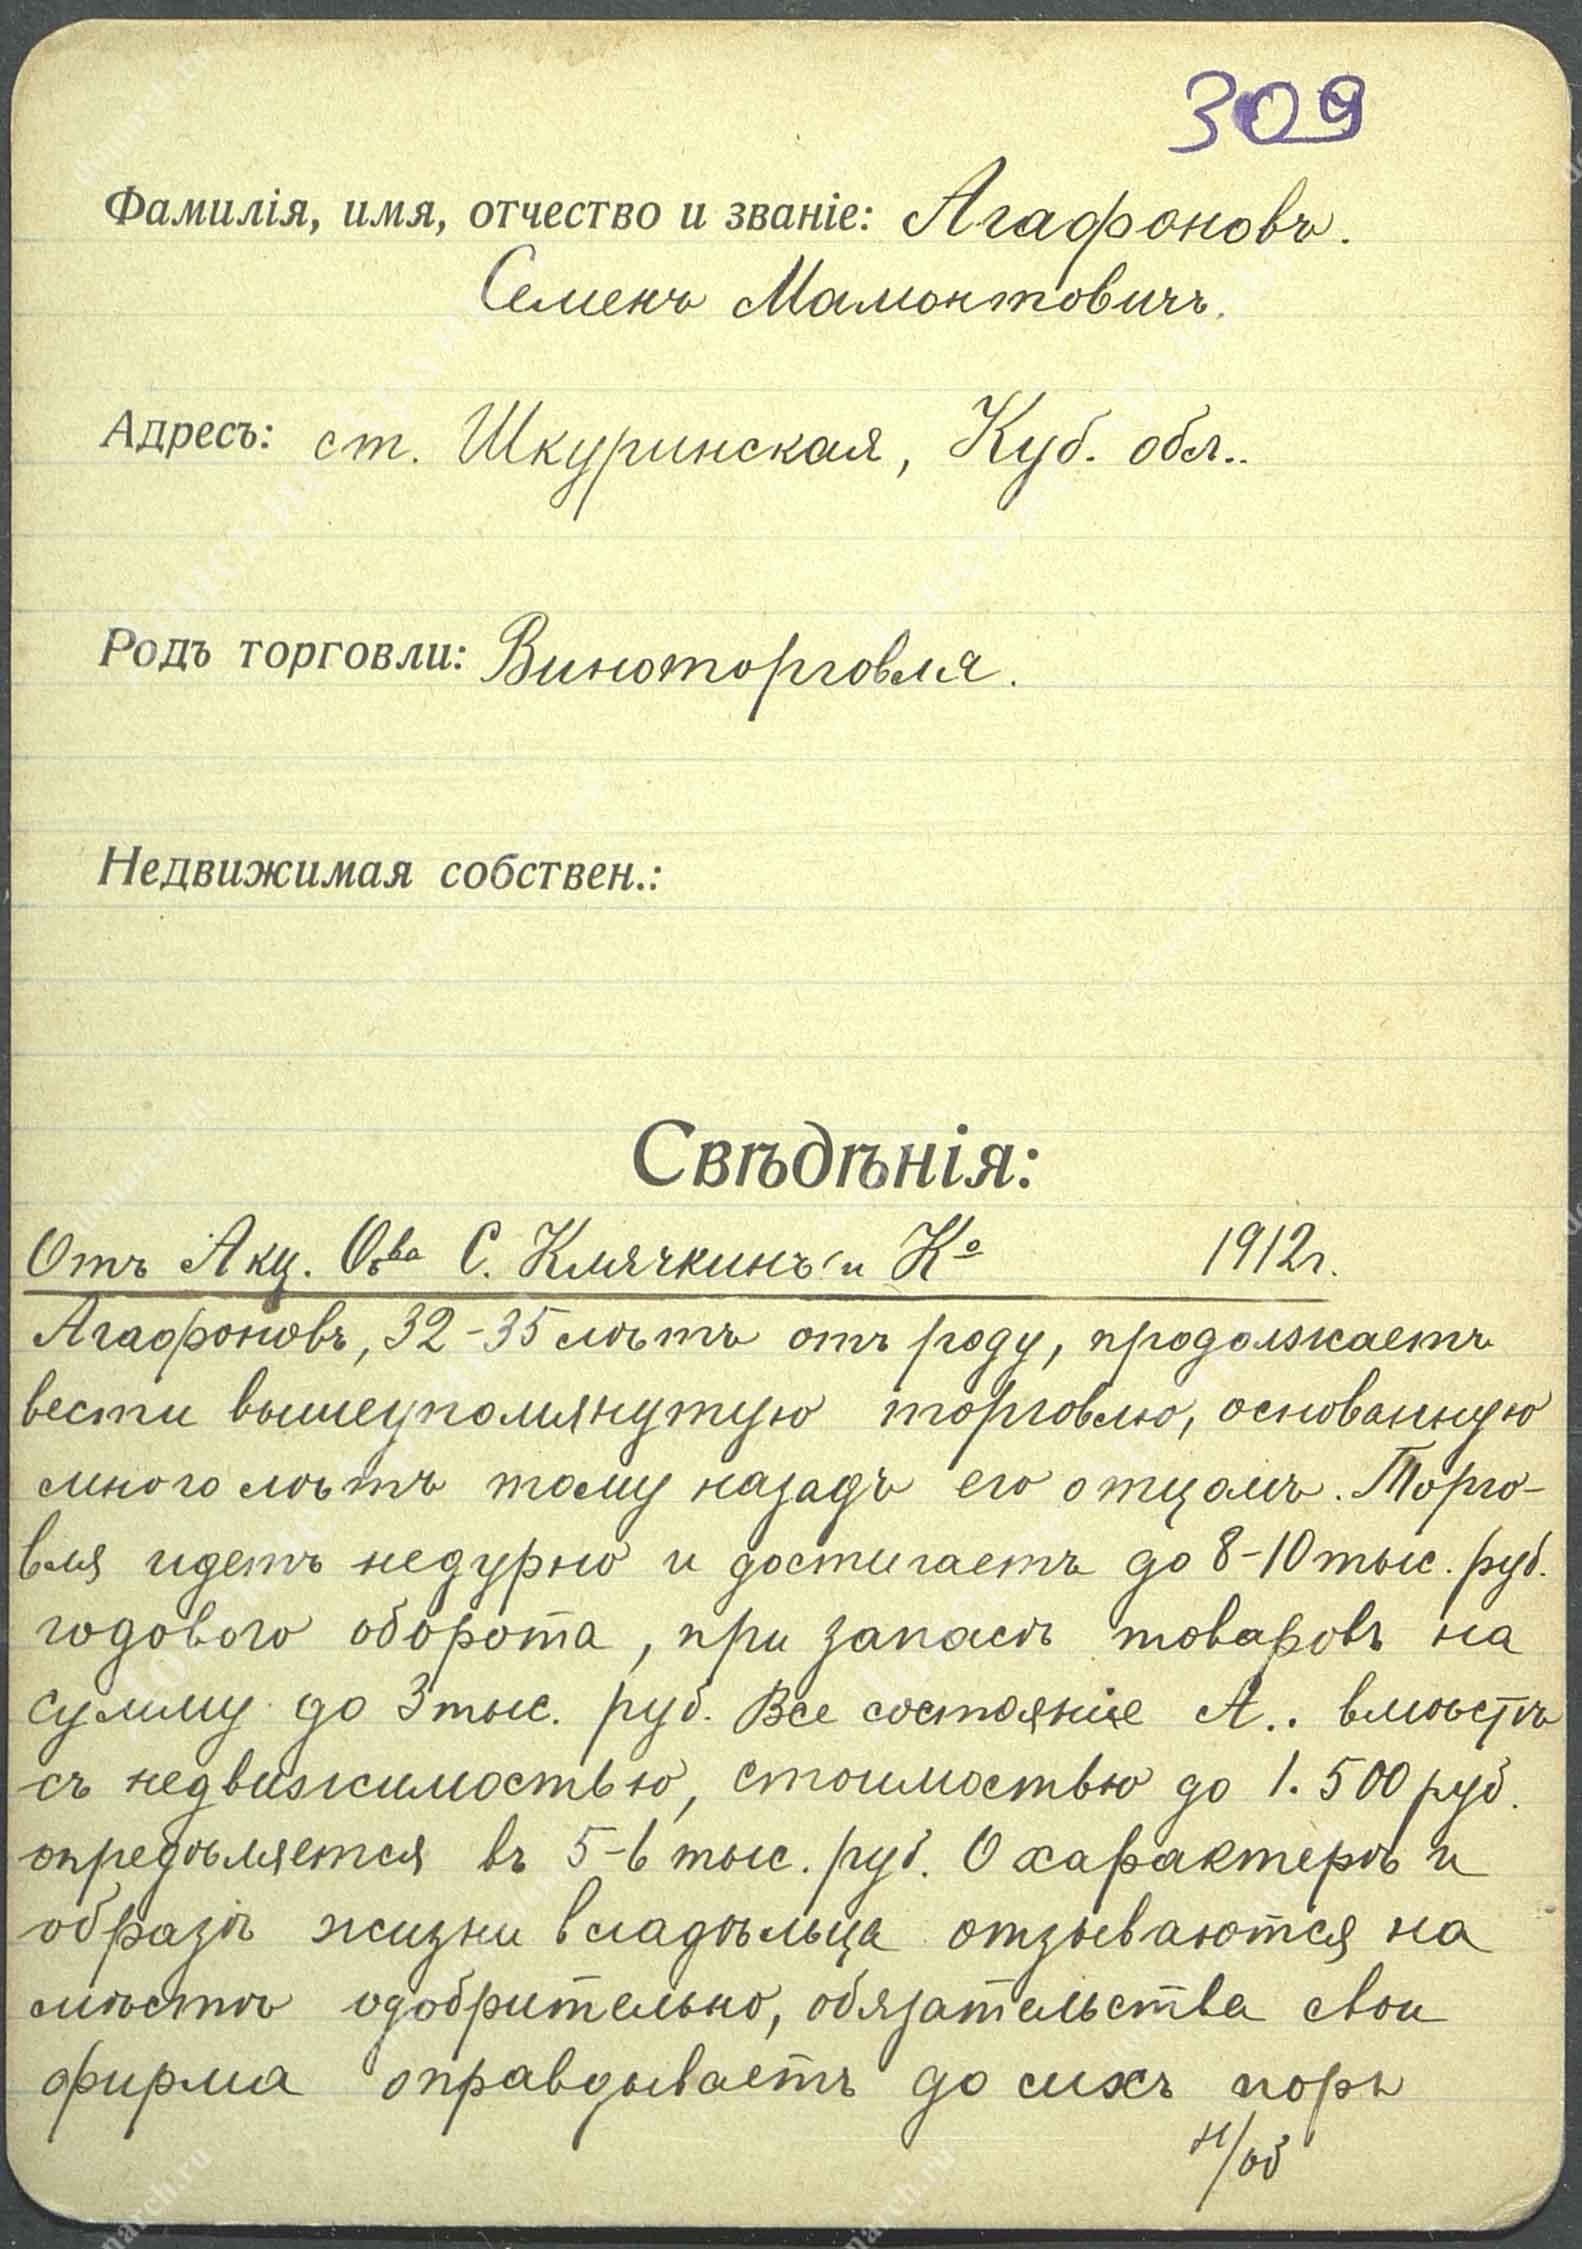 309
Фамилія, имя, отчество и званіе: Агафоновъ.
Семенъ Мамонтовичъ.
Адресъ: ст. Шкуринская, Куб. обл..
Родъ торговли: Виноторговля.
Недвижимая собствен.:
Свѣдѣнія:
Отъ Акц. О-ва С. Клячкинъ и Ко 1912г.
Агафоновъ, 32-35 лѣтъ отъ роду, продолжаетъ
вести вышеупомянутую торговлю, основанную
много лѣтъ тому назадъ его отцомъ. Торго-
вля идетъ недурно и достигаетъ до 8-10 тыс. руб.
годового оборота, при запасѣ товаровъ на
сумму до 3 тыс. руб. Все состояніе А.. вмѣстѣ
съ недвижимостью, стоимостью до 1.500 руб.
опредѣляется въ 5-6 тыс. руб. О характерѣ и
образѣ жизни владѣльца отзываются на
мѣстѣ одобрительно, обязательства свои
фирма оправдываетъ до сихъ поръ
н/об